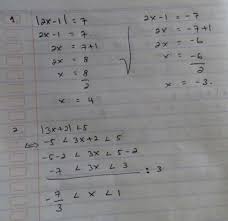 1. |2x-1| = 7
2x-1 = 7
2x = 7+1
2x = 8
x = 8/2
x = 4
2x-1 = -7
2x = -7+1
2x = -6
x = -6/2
x = -3.
2. |3x+2| < 5
⇔ -5 < 3x+2 < 5
-5-2 < 3x < 5-2
-7 < 3x < 3 : 3
-7/3 < x < 1